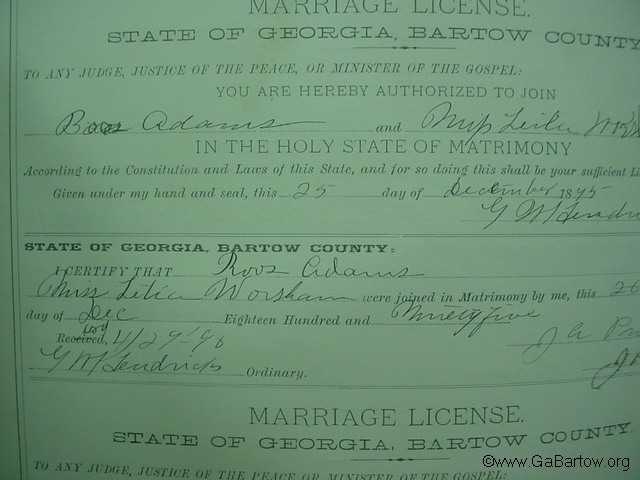 MARRIAGE LICENSE.
STATE OF GEORGIA, BARTOW COUNTY
TO ANY JUDGE, JUSTICE OF THE PEACE, OR MINISTER OF THE GOSPEL:
YOU ARE HEREBY AUTHORIZED TO JOIN
Adams and Miss Leila
IN THE HOLY STATE OF MATRIMONY
According to the Constitution and Laws of this State, and for so doing this shall be your sufficient Li
Given under my hand and seal, this 25 day of December 1895
G W Hendri
STATE OF GEORGIA, BARTOW COUNTY:
I CERTIFY THAT Roos Adams
Miss Letia Worsham were joined in Matrimony by me, this 26
day of Dec Eighteen Hundred and Ninety five
Received, 4/29-96
J A
G W Hendricks Ordinary.
MARRIAGE LICENSE.
STATE OF GEORGIA, BARTOW COUNTY.
TO ANY JUDGE, JUSTICE OF THE PEACE OR MINISTER OF THE GOSPEL:
©www.GaBartow.org